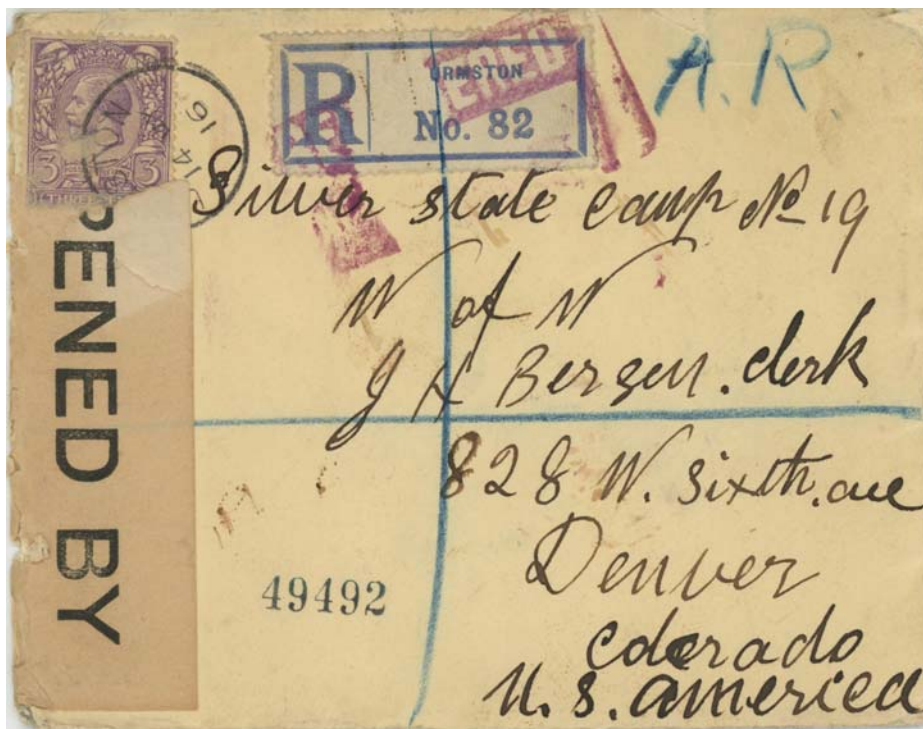 A.R
R
URMSTON
No. 82
3 3
14
16
Silver state camp No 19
W of W
J H Bergen. clerk
828 W. Sixth. ave
Denver
Colorado
U. S. America
PENED BY
49492